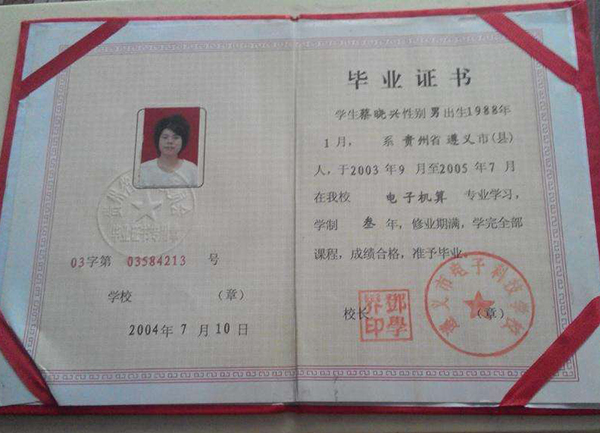 03字第 03584213 号
学校 (章)
2004年7月10日
毕业证书
学生蔡晓兴性别男出生1988年
1月, 系贵州省遵义市(县)
人,于2003年9月至2005年7月
在我校 电子机算 专业学习,
学制 叁 年,修业期满,学完全部
课程,成绩合格,准予毕业。
校长 (章)
鄧學
界印
遵义市电子科技学校